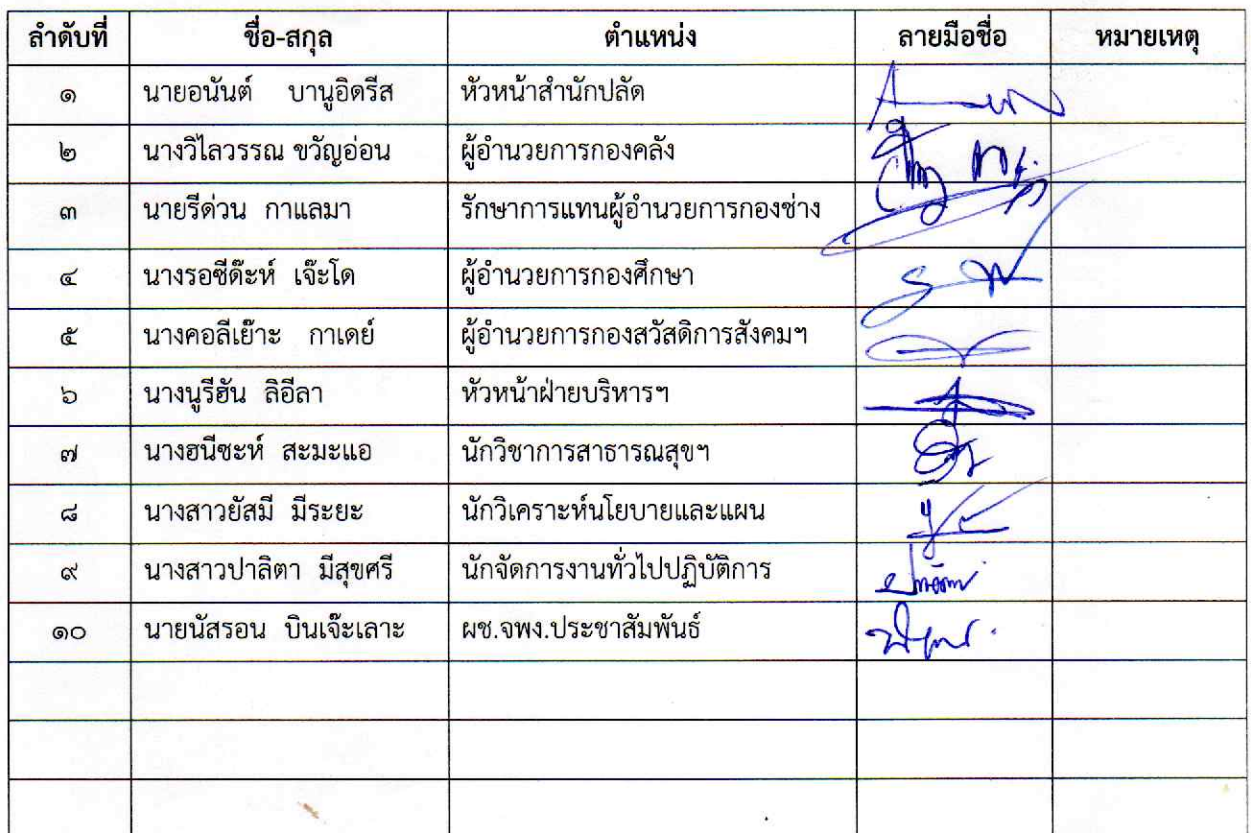 ลำดับที่ ชื่อ-สกุล ตำแหน่ง ลายมือชื่อ หมายเหตุ
๑ นายอนันต์ บานูอิดรีส หัวหน้าสำนักปลัด
๒ นางวิไลวรรณ ขวัญอ่อน ผู้อำนวยการกองคลัง
๓ นายรีด่วน กาแลมา รักษาการแทนผู้อำนวยการกองช่าง
๔ นางรอซีด๊ะห์ เจ๊ะโด ผู้อำนวยการกองศึกษา
๕ นางคอลีเย๊าะ กาเดย์ ผู้อำนวยการกองสวัสดิการสังคมฯ
๖ นางนูรีฮัน ลิอีลา หัวหน้าฝ่ายบริหารฯ
๗ นางฮนีซะห์ สะมะแอ นักวิชาการสาธารณสุขฯ
๘ นางสาวยัสมี มีระยะ นักวิเคราะห์นโยบายและแผน
๙ นางสาวปาลิตา มีสุขศรี นักจัดการงานทั่วไปปฏิบัติการ
๑๐ นายนัสรอน บินเจ๊ะเลาะ ผช.จพง.ประชาสัมพันธ์